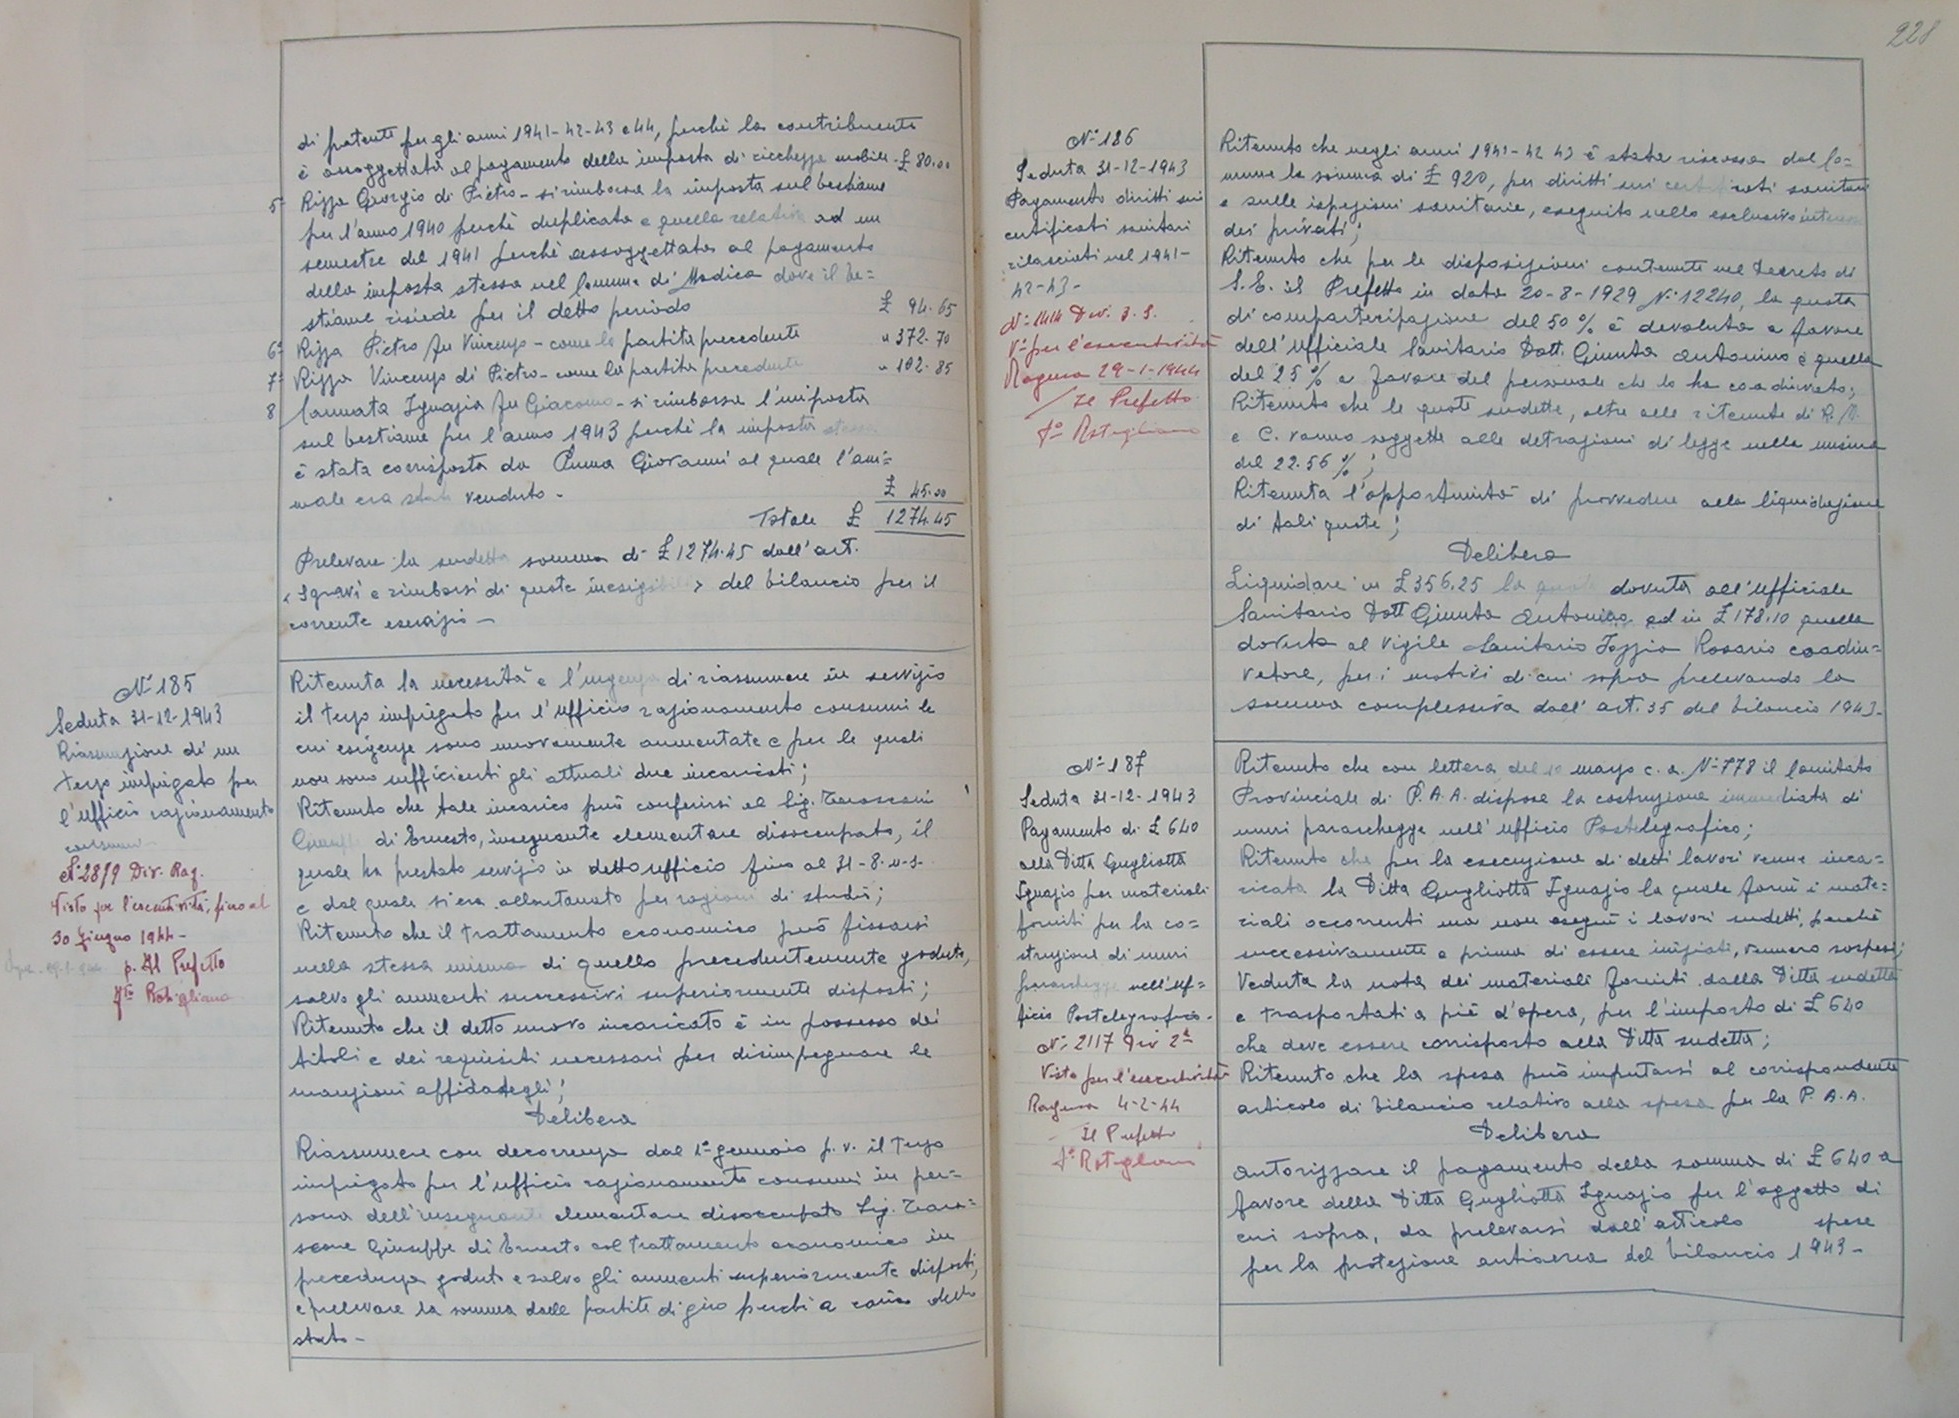 di patente per gli anni 1941-42-43 e 44, perchè la contribuente
è assoggettata al pagamento della imposta di ricchezza mobile - £ 80.00
5° Rizza Giorgio di Pietro - si rimborsa la imposta sul bestiame
per l'anno 1940 perchè duplicata e quella relativa ad un
semestre del 1941 perchè assoggettata al pagamento
della imposta stessa nel Comune di Modica dove il be=
stiame risiede per il detto periodo £ 94.65
6° Rizza Pietro fu Vincenzo - come la partita precedente " 372.70
7° Rizza Vincenzo di Pietro - come la partita precedente " 102.85
8 Cannata Ignazia fu Giacomo - si rimborsa l'imposta
sul bestiame per l'anno 1943 perchè la imposta stessa
è stata corrisposta da Puma Giovanni al quale l'ani=
male era stato venduto - £ 45.00
Totale £ 1274.45
Prelevare la sudetta somma di £ 1274.45 dall'art.
< Sgravi e rimborsi di quote inesigibili > del bilancio per il
corrente esercizio -
N° 185
Seduta 31-12-1943
Riassunzione di un
terzo impiegato per
l'ufficio razionamento
consumi -
N° 2879 Div. Rag.
Visto per l'esecutività, fino al
30 giugno 1944 -
p. Il Prefetto
f.to Rotigliano
Ritenuta la necessità e l'urgenza di riassumere in servizio
il terzo impiegato per l'ufficio razionamento consumi le
cui esigenze sono nuovamente aumentate e per le quali
non sono sufficienti gli attuali due incaricati;
Ritenuto che tale incarico può conferirsi al Sig. Terascani
di Ernesto, insegnante elementare disoccupato, il
quale ha prestato servizio in detto ufficio fino al 31-8-u-s-
e dal quale si era allontanato per ragioni di studi;
Ritenuto che il trattamento economico può fissarsi
nella stessa misura di quello precedentemente goduto,
salvo gli aumenti successivi superiormente disposti;
Ritenuto che il detto nuovo incaricato è in possesso dei
titoli e dei requisiti necessari per disimpegnare le
mansioni affidategli;
Delibera
Riassumere con decorrenza dal 1° gennaio p. v. il terzo
impiegato per l'ufficio razionamento consumi in per=
sona dell'insegnante elementare disoccupato Sig.
Giuseppe di Ernesto col trattamento economico in
precedenza goduto e salvo gli aumenti superiormente disposti,
e prelevare la somma dalle partite di giro perchè a carico dello
stato -
228
N° 186
Seduta 31-12-1943
Pagamento diritti sui
certificati sanitari
rilasciati nel 1941-
42-43-
N° 1414 Div. 3. S.
V° per l'esecutività
Ragusa 29-1-1944
Il Prefetto
f.° Rotigliano
Ritenuto che negli anni 1941-42 43 è stata riscossa dal Co=
mune la somma di £ 920, per diritti sui certificati sanitari
e sulle ispezioni sanitarie, eseguite nello esclusivo interesse
dei privati;
Ritenuto che per le disposizioni contenute nel Decreto di
S. E. il Prefetto in data 20-8-1929 N° 12240, la quota
di compartecipazione del 50% è devoluta a favore
dell'Ufficiale Sanitario Dott. Giunta Antonino e quella
del 25% a favore del personale che lo ha coadiuvato;
Ritenuto che le quote sudette, oltre alle ritenute di R. M.
e C. vanno soggette alle detrazioni di legge nella misura
del 22.56%;
Ritenuta l'opportunità di provvedere alla liquidazione
di tali quote;
Delibera
Liquidare in £ 356.25 la quota dovuta all'Ufficiale
Sanitario Dott Giunta Antonino ed in £ 178.10 quella
dovuta al Vigile Sanitario Iozzia Rosario coadiu=
vatore, per i motivi di cui sopra prelevando la
somma complessiva dall'art. 35 del bilancio 1943-
N° 187
Seduta 31-12-1943
Pagamento di £ 640
alla Ditta Gugliotta
Ignazio per materiali
forniti per la co=
struzione di muri
paraschegge nell'uf=
ficio Postelegrafico -
N° 2117 Div 2a
Visto per l'esecutività
Ragusa 4-2-44
Il Prefetto
f.° Rotigliano
Ritenuto che con lettera del 10 marzo c. a. N° 778 il Comitato
Provinciale di P.A.A. dispose la costruzione immediata di
muri paraschegge nell'ufficio Postelegrafico;
Ritenuto che per la esecuzione di detti lavori venne inca=
ricata la Ditta Gugliotta Ignazio la quale fornì i mate=
riali occorrenti ma non eseguì i lavori sudetti, perchè
successivamente e prima di essere iniziati, vennero sospesi;
Veduta la nota dei materiali forniti dalla Ditta sudetta
e trasportati a piè d'opera, per l'importo di £ 640
che deve essere corrisposto alla Ditta sudetta;
Ritenuto che la spesa può imputarsi al corrispondente
articolo di bilancio relativo alla spesa per la P. A. A.
Delibera
Autorizzare il pagamento della somma di £ 640 a
favore della Ditta Gugliotta Ignazio per l'oggetto di
cui sopra, da prelevarsi dall'articolo spese
per la protezione antiaerea del bilancio 1943-